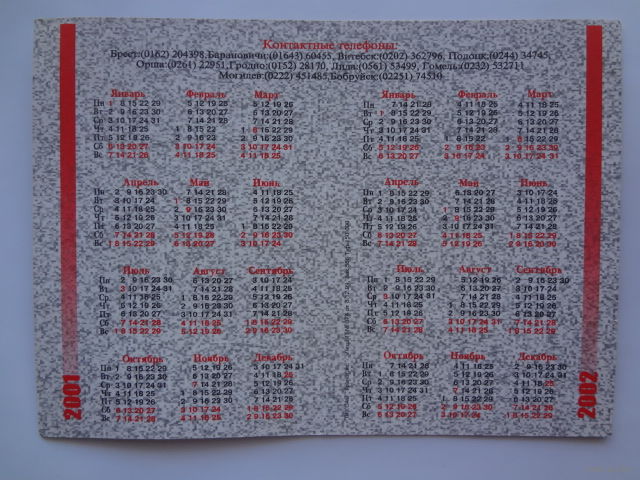 Контактные телефоны:
Брест:(0162) 204398,Барановичи:(01643) 60455, Витебск:(0202) 362796, Полоцк:(0244) 34745,
Орша:(0261) 22951,Гродно:(0152) 28170, Лида:(0561) 53499, Гомель:(0232) 532711
Могилев:(0222) 451485,Бобруйск:(02251) 74510
Январь Февраль Март
Пн 1 8 15 22 29 5 12 19 26 5 12 19 26
Вт 2 9 16 23 30 6 13 20 27 6 13 20 27
Ср 3 10 17 24 31 7 14 21 28 7 14 21 28
Чт 4 11 18 25 1 8 15 22 1 8 15 22 29
Пт 5 12 19 26 2 9 16 23 2 9 16 23 30
Сб 6 13 20 27 3 10 17 24 3 10 17 24 31
Вс 7 14 21 28 4 11 18 25 4 11 18 25
Апрель Май Июнь
Пн 2 9 16 23 30 7 14 21 28 4 11 18 25
Вт 3 10 17 24 1 8 15 22 29 5 12 19 26
Ср 4 11 18 25 2 9 16 23 30 6 13 20 27
Чт 5 12 19 26 3 10 17 24 31 7 14 21 28
Пт 6 13 20 27 4 11 18 25 1 8 15 22 29
Сб 7 14 21 28 5 12 19 26 2 9 16 23 30
Вс 1 8 15 22 29 6 13 20 27 3 10 17 24
Июль Август Сентябрь
Пн 2 9 16 23 30 6 13 20 27 3 10 17 24
Вт 3 10 17 24 31 7 14 21 28 4 11 18 25
Ср 4 11 18 25 1 8 15 22 29 5 12 19 26
Чт 5 12 19 26 2 9 16 23 30 6 13 20 27
Пт 6 13 20 27 3 10 17 24 31 7 14 21 28
Сб 7 14 21 28 4 11 18 25 1 8 15 22 29
Вс 1 8 15 22 29 5 12 19 26 2 9 16 23 30
Октябрь Ноябрь Декабрь
Пн 1 8 15 22 29 5 12 19 26 3 10 17 24 31
Вт 2 9 16 23 30 6 13 20 27 4 11 18 25
Ср 3 10 17 24 31 7 14 21 28 5 12 19 26
Чт 4 11 18 25 1 8 15 22 29 6 13 20 27
Пт 5 12 19 26 2 9 16 23 30 7 14 21 28
Сб 6 13 20 27 3 10 17 24 1 8 15 22 29
Вс 7 14 21 28 4 11 18 25 2 9 15 23 30
2001
Январь Февраль Март
Пн 7 14 21 28 4 11 18 25 4 11 18 25
Вт 1 8 15 22 29 5 12 19 26 5 12 19 26
Ср 2 9 16 23 30 6 13 20 27 6 13 20 27
Чт 3 10 17 24 31 7 14 21 28 7 14 21 28
Пт 4 11 18 25 1 8 15 22 1 8 15 22 29
Сб 5 12 19 26 2 9 16 23 2 9 16 23 30
Вс 6 13 20 27 3 10 17 24 3 10 17 24 31
Апрель Май Июнь
Пн 1 8 15 22 29 6 13 20 27 3 10 17 24
Вт 2 9 16 23 30 7 14 21 28 4 11 18 25
Ср 3 10 17 24 1 8 15 22 29 5 12 19 26
Чт 4 11 18 25 2 9 16 23 30 6 13 20 27
Пт 5 12 19 26 3 10 17 24 31 7 14 21 28
Сб 6 13 20 27 4 11 18 25 1 8 15 22 29
Вс 7 14 21 28 5 12 19 26 2 9 16 23 30
Июль Август Сентябрь
Пн 1 8 15 22 29 5 12 19 26 2 9 16 23 30
Вт 2 9 16 23 30 6 13 20 27 3 10 17 24
Ср 3 10 17 24 31 7 14 21 28 4 11 18 25
Чт 4 11 18 25 1 8 15 22 29 5 12 19 26
Пт 5 12 19 26 2 9 16 23 30 6 13 20 27
Сб 6 13 20 27 3 10 17 24 31 7 14 21 28
Вс 7 14 21 28 4 11 18 25 1 8 15 22 29
Октябрь Ноябрь Декабрь
Пн 7 14 21 28 4 11 18 25 2 9 16 23 30
Вт 1 8 15 22 29 5 12 19 26 3 10 17 24 31
Ср 2 9 16 23 30 6 13 20 27 4 11 18 25
Чт 3 10 17 24 31 7 14 21 28 5 12 19 26
Пт 4 11 18 25 1 8 15 22 29 6 13 20 27
Сб 5 12 19 26 2 9 16 23 30 7 14 21 28
Вс 6 13 20 27 3 10 17 24 1 8 15 22 29
2002